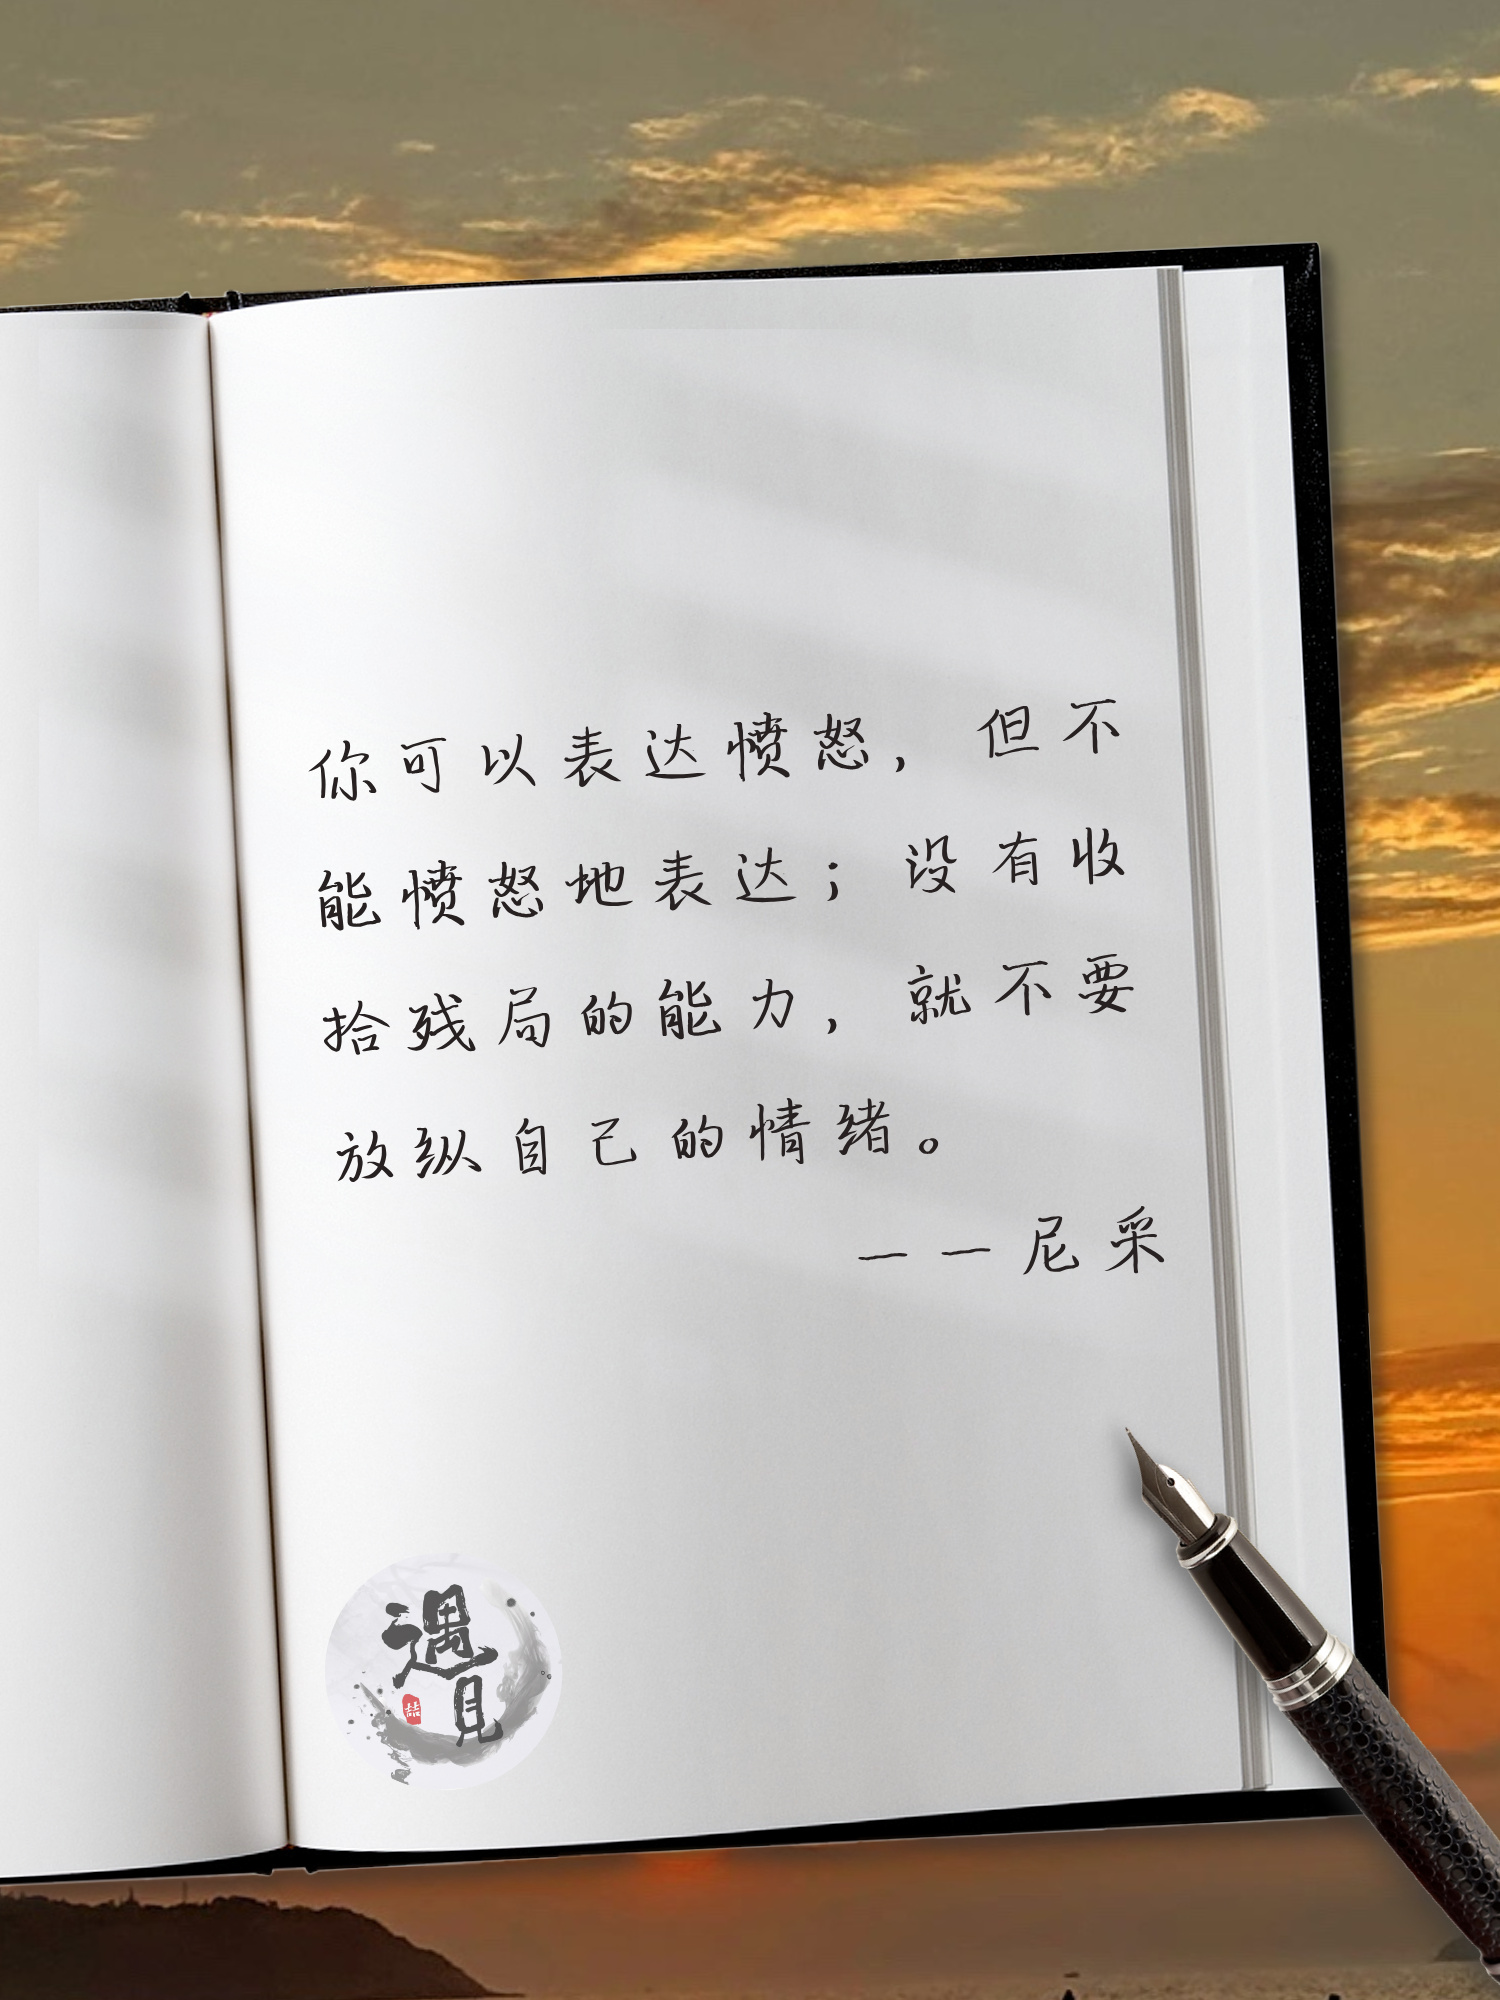 你可以表达愤怒，但不
能愤怒地表达；没有收
拾残局的能力，就不要
放纵自己的情绪。
——尼采
遇见